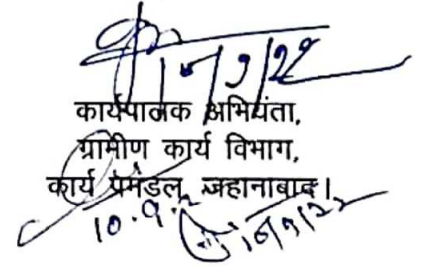 10/9/22
कार्यपालक अभियंता,
ग्रामीण कार्य विभाग,
कार्य प्रमंडल, जहानाबाद।
10.9.22
10/9/22